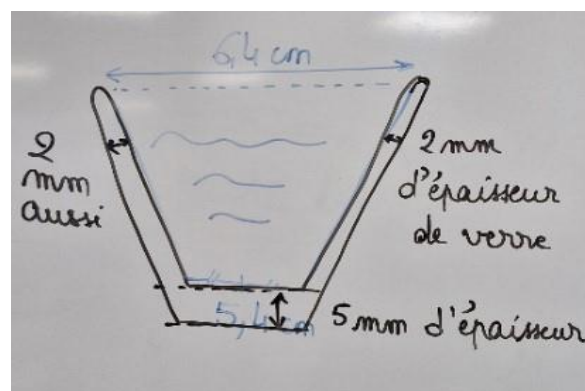 6,4 cm
2
mm
aussi
2 mm
d'épaisseur
de verre
5,4 cm
5 mm d'épaisseur